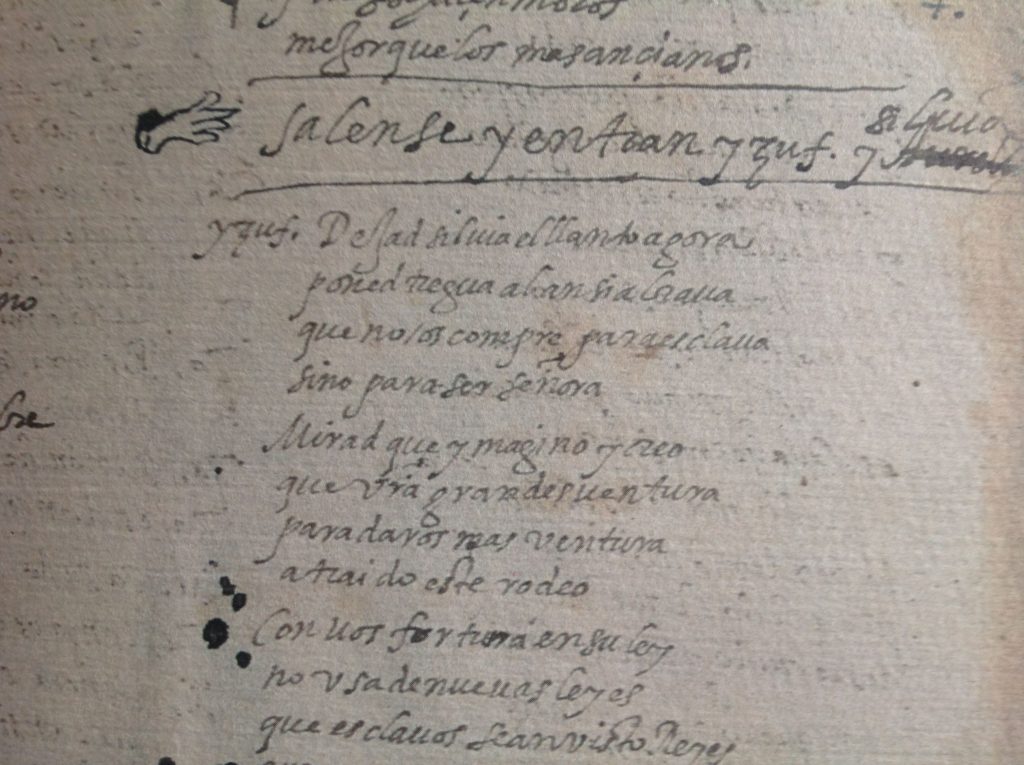 mejor que los mas ançianos.
salense y entran yzuf. y silvio
yzuf. Dejad silvia el llanto agora
poned tregua al ansia braua
que no os compre para esclaua
sino para ser señora
Mirad que ymagino y creo
que vra gran desuentura
para daros mas ventura
a traido este rodeo
Con uos fortuna en su ley
no vsa de nueuas leyes
que esclauos se an visto Reyes
que